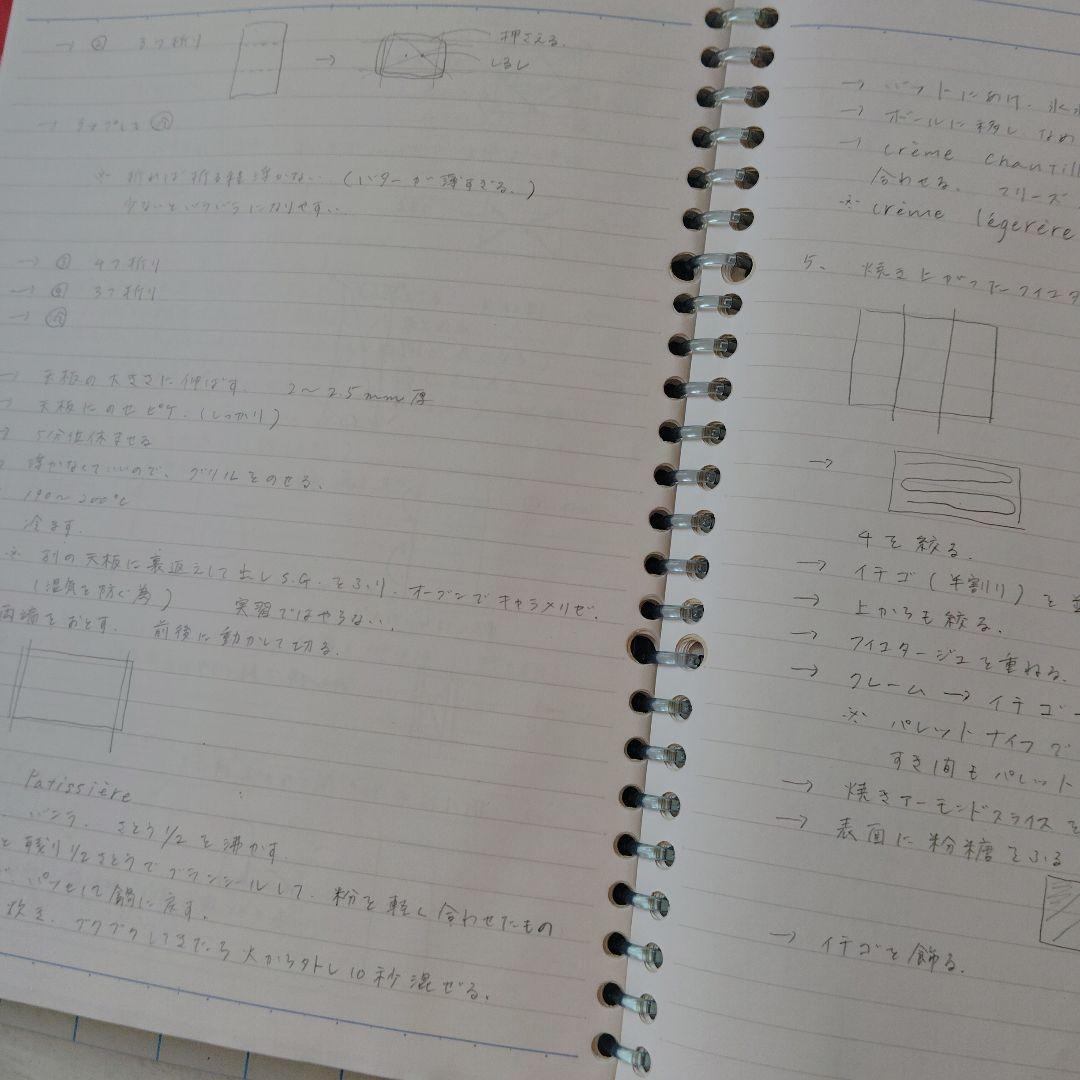 → ② 3つ折り
→
押さえる.
しるし
→ ラップして
※ 折れば折る程浮かない (バターが薄すぎる.)
少ないとバラバラになりやすい.
→ ③ 4つ折り
→ ④ 3つ折り
→
→ 天板の大きさに伸ばす. 2〜2.5mm厚
→ 天板にのせピケ. (しっかり)
→ 5分位休ませる
浮かなくていいので、グリルをのせる.
190〜200℃
冷ます.
※ 別の天板に裏返えして出しS.G.をふり、オーブンでキャラメリゼ.
(湿気を防ぐ為) 実習ではやらない.
両端をおとす. 前後に動かして切る.
Patissière
バニラ. さとう1/2を沸かす.
と残り1/2さとうでブランシールして、粉を軽く合わせたもの
パッセして鍋に戻す.
炊き. ブクブクしてきたら火から外し10秒混ぜる.
→ バットにあけ. 氷水
→ ボールに移し なめ
→ crème chantill
合わせる.
※ crème légerère
5. 焼き上がったフイユタ
→
4を絞る.
→ イチゴ (半割り) を並
→ 上からも絞る.
→ フイユタージュを重ねる.
→ クレーム → イチゴ
※ パレットナイフで
すき間もパレット
→ 焼きアーモンドスライスを
→ 表面に粉糖をふる
→ イチゴを飾る.